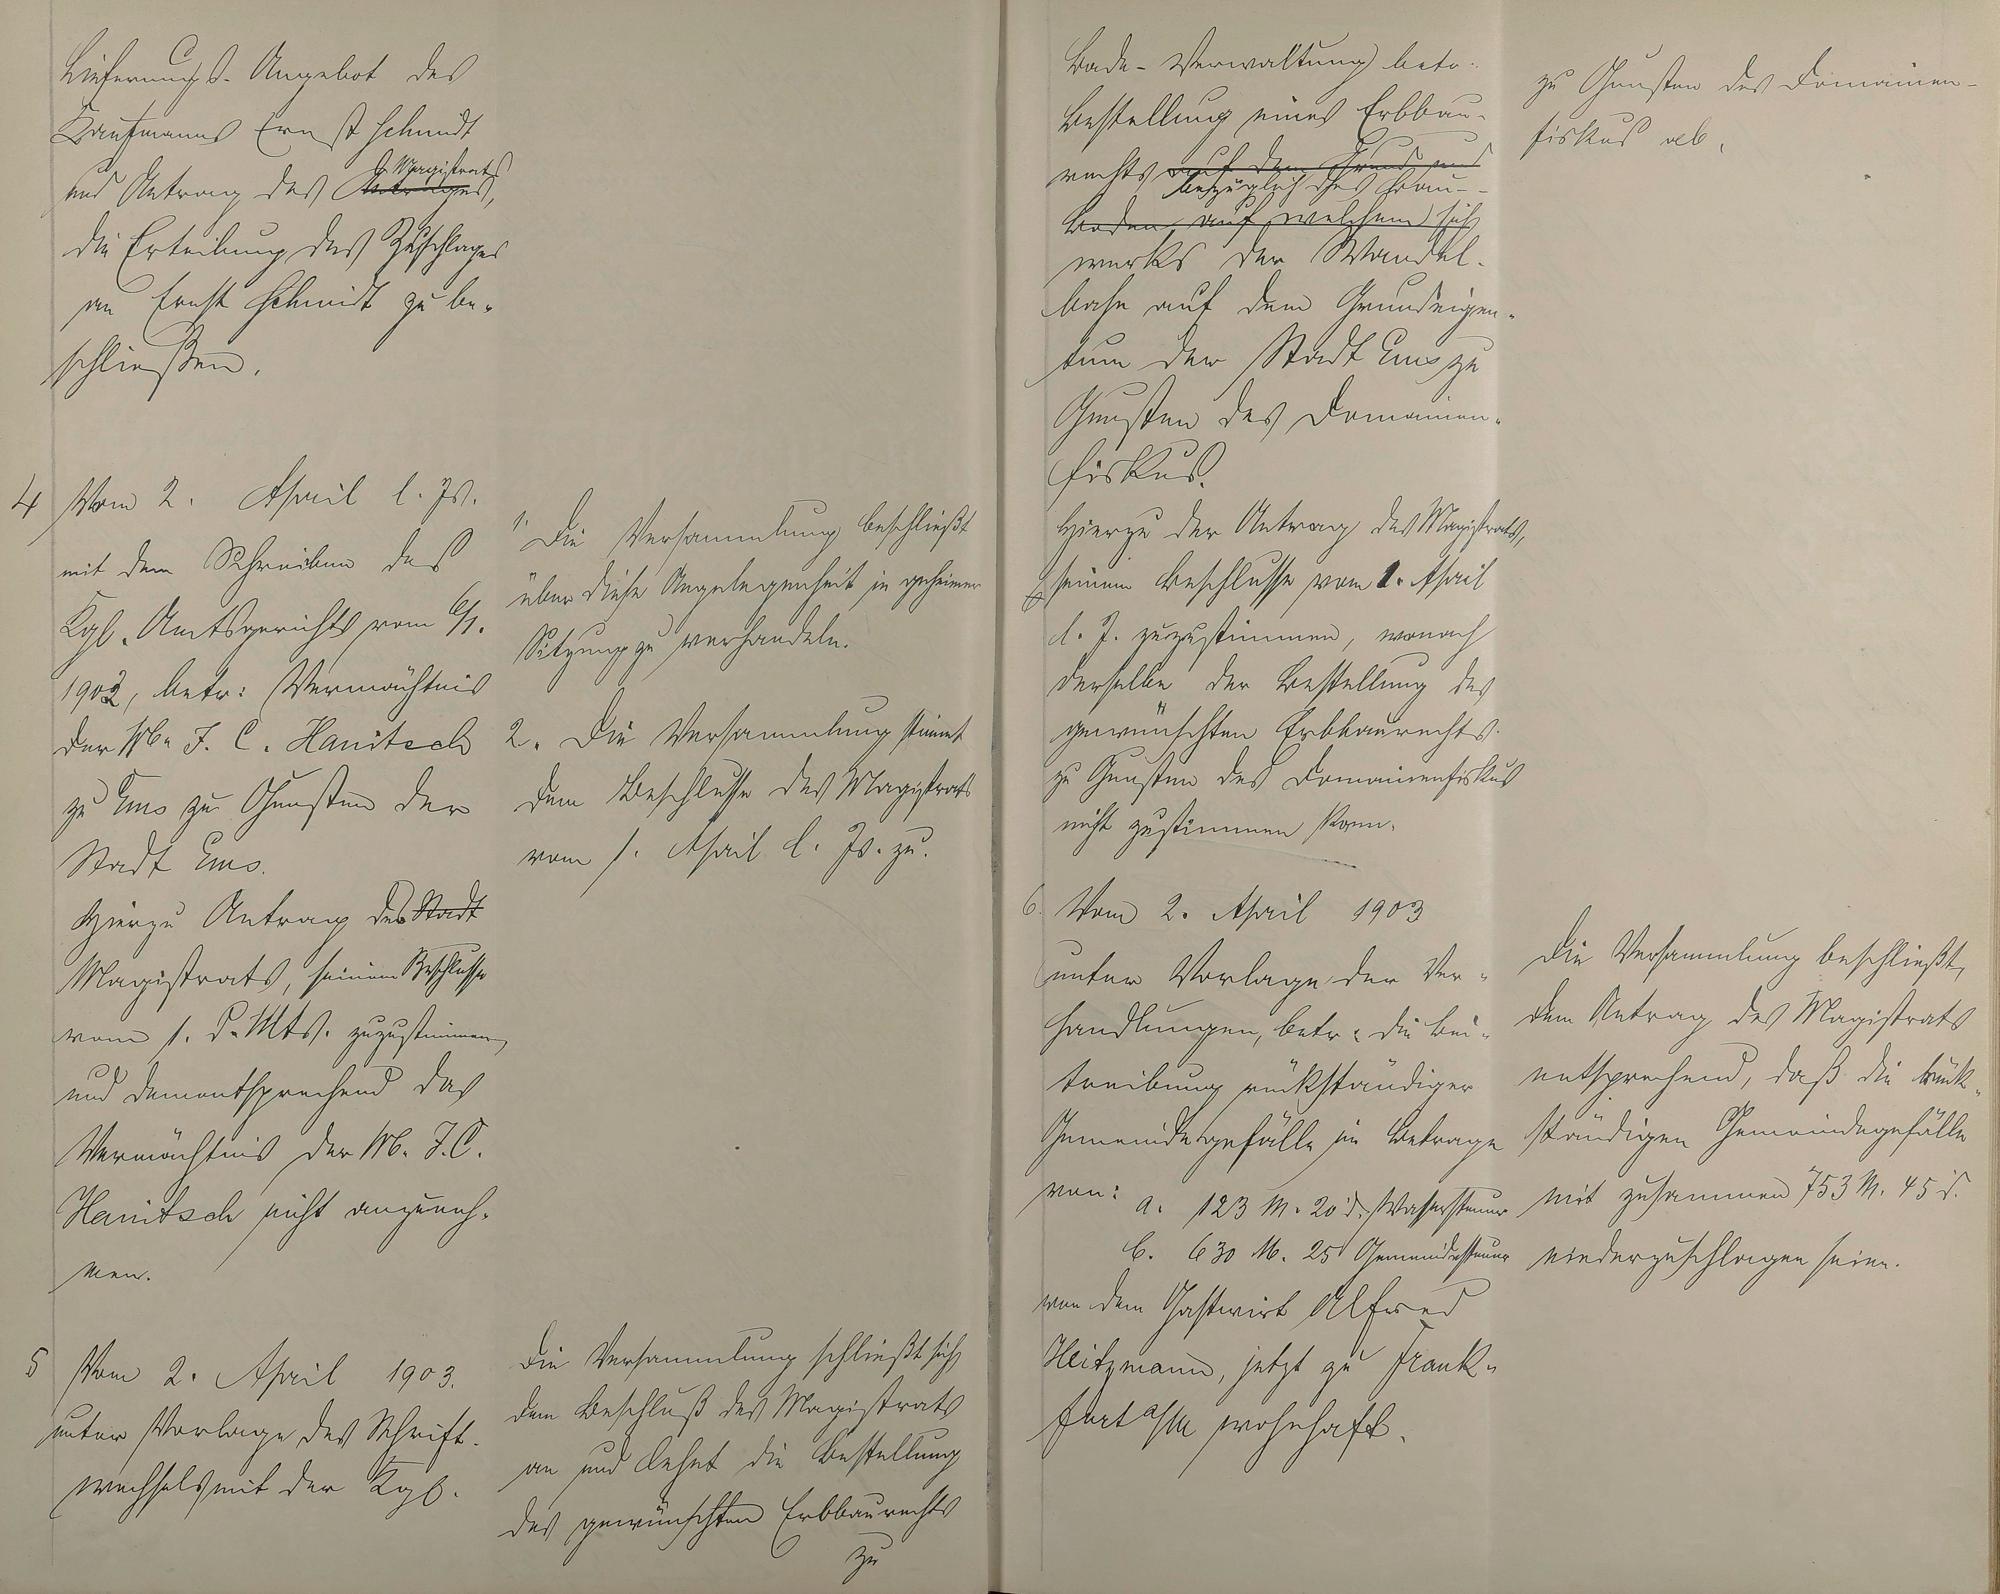 Lieferungs-Angebot des
Kaufmanns Ernst Schmidt
und Antrag des Magistrats,
die Erteilung des Zuschlages
an Ernst Schmidt zu be-
schließen.
4 Vom 2. April l. Js.
mit dem Schreiben des
Kgl. Amtsgerichts vom 6/1.
1903, betr: Vermächtnis
der Wb. J. C. Hanitsch
zu Ems zu Gunsten der
Stadt Ems.
Hierzu Antrag des Stadt
Magistrats, seinem Beschlusse
vom 1. d. Mts. zuzustimmen
und dementsprechend das
Vermächtnis der W. J. C.
Hanitsch nicht anzuneh-
men.
1. Die Versammlung beschließt
über diese Angelegenheit in geheimer
Sitzung zu verhandeln.
2. Die Versammlung stimmt
dem Beschlusse des Magistrats
vom 1. April l. Js. zu.
5 Vom 2. April 1903.
unter Vorlage des Schrift-
wechsels mit der Kgl.
Die Versammlung schließt sich
dem Beschluß des Magistrats
an und lehnt die Bestellung
des gewünschten Erbbaurechts
zu
Bade-Verwaltung betr.
Bestellung eines Erbbau-
rechts auf dem Grund und
bezüglich des Bau-
Boden, auf welchem sich
werks der Wandel-
bahn auf dem Grundeigen-
tum der Stadt Ems zu
Gunsten des Domainen-
fiskus.
Hierzu der Antrag des Magistrats,
seinem Beschlusse vom 1. April
l. J. zuzustimmen, wonach
derselbe der Bestellung des
gewünschten Erbbaurechts
zu Gunsten des Domainenfiskus
nicht zustimmen kann.
zu Gunsten des Domainen-
fiskus ab.
6. Vom 2. April 1903
unter Vorlage der Ver-
handlungen, betr: die Bei-
treibung rückständiger
Gemeindegefälle im Betrage
von: a. 123 M. 20 d. Wassersteuer
b. 630 M. 25 Gemeindesteuer
von dem Gastwirt Alfred
Heitzmann, jetzt zu Frank-
furt a/M wohnhaft.
Die Versammlung beschließt,
dem Antrag des Magistrats
entsprechend, daß die rück-
ständigen Gemeindegefälle
mit zusammen 753 M. 45 d.
niederzuschlagen seien.